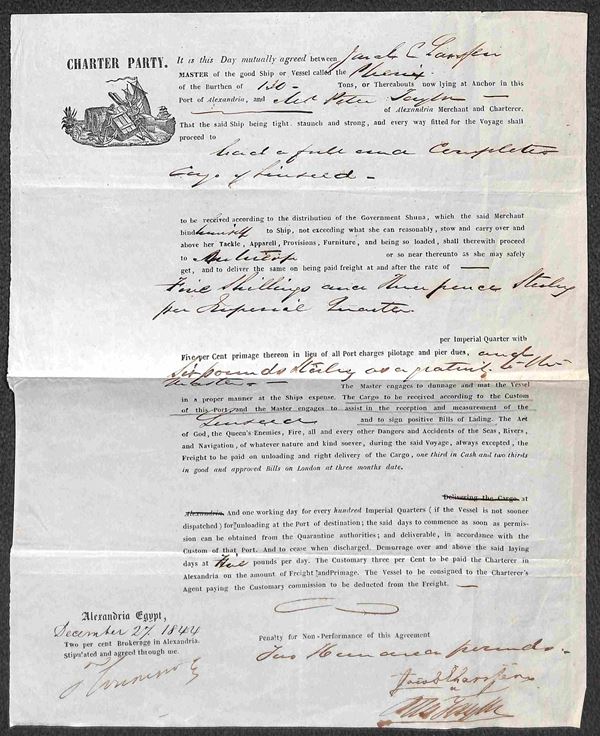 CHARTER PARTY.
It is this Day mutually agreed between Jacob C
MASTER of the good Ship or Vessel called the Phenix
of the Burthen of 130 - Tons, or Thereabouts now lying at Anchor in this
Port of Alexandria, and Peter Taylor
of Alexandria Merchant and Charterer.
That the said Ship being tight. staunch and strong, and every way fitted for the Voyage shall
proceed to
load a full and Complete
Cargo of Linseed -
to be received according to the distribution of the Government Shuna, which the said Merchant
bind himself to Ship, not exceeding what she can reasonably, stow and carry over and
above her Tackle, Apparel, Provisions, Furniture, and being so loaded, shall therewith proceed
to Antwerp or so near thereunto as she may safely
get, and to deliver the same on being paid freight at and after the rate of
Five Shillings and Three pence Sterling
per Imperial Quarter
per Imperial Quarter with
Five per Cent primage thereon in lieu of all Port charges pilotage and pier dues, and
Six pounds Sterling as a gratuity to the
Master - The Master engages to dunnage and mat the Vessel
in a proper manner at the Ships expense. The Cargo to be received according to the Custom
of this Port and the Master engages to assist in the reception and measurement of the
Linseed and to sign positive Bills of Lading. The Act
of God, the Queen's Enemies, Fire, all and every other Dangers and Accidents of the Seas, Rivers,
and Navigation, of whatever nature and kind soever, during the said Voyage, always excepted, the
Freight to be paid on unloading and right delivery of the Cargo, one third in Cash and two thirds
in good and approved Bills on London at three months date.
Delivering the Cargo at
Alexandria. And one working day for every hundred Imperial Quarters ( if the Vessel is not sooner
dispatched ) for unloading at the Port of destination; the said days to commence as soon as permis-
sion can be obtained from the Quarantine authorities; and deliverable, in accordance with the
Custom of that Port. And to cease when discharged. Demurrage over and above the said laying
days at Five pounds per day. The Customary three per Cent to be paid the Charterer in
Alexandria on the amount of Freight and Primage. The Vessel to be consigned to the Charterer's
Agent paying the Customary commission to be deducted from the Freight.
Alexandria Egypt,
December 27 1844
Two per cent Brokerage in Alexandria.
Stipulated and agreed through me.
Penalty for Non-Performance of this Agreement
Two Hundred pounds -
Jacob
Taylor